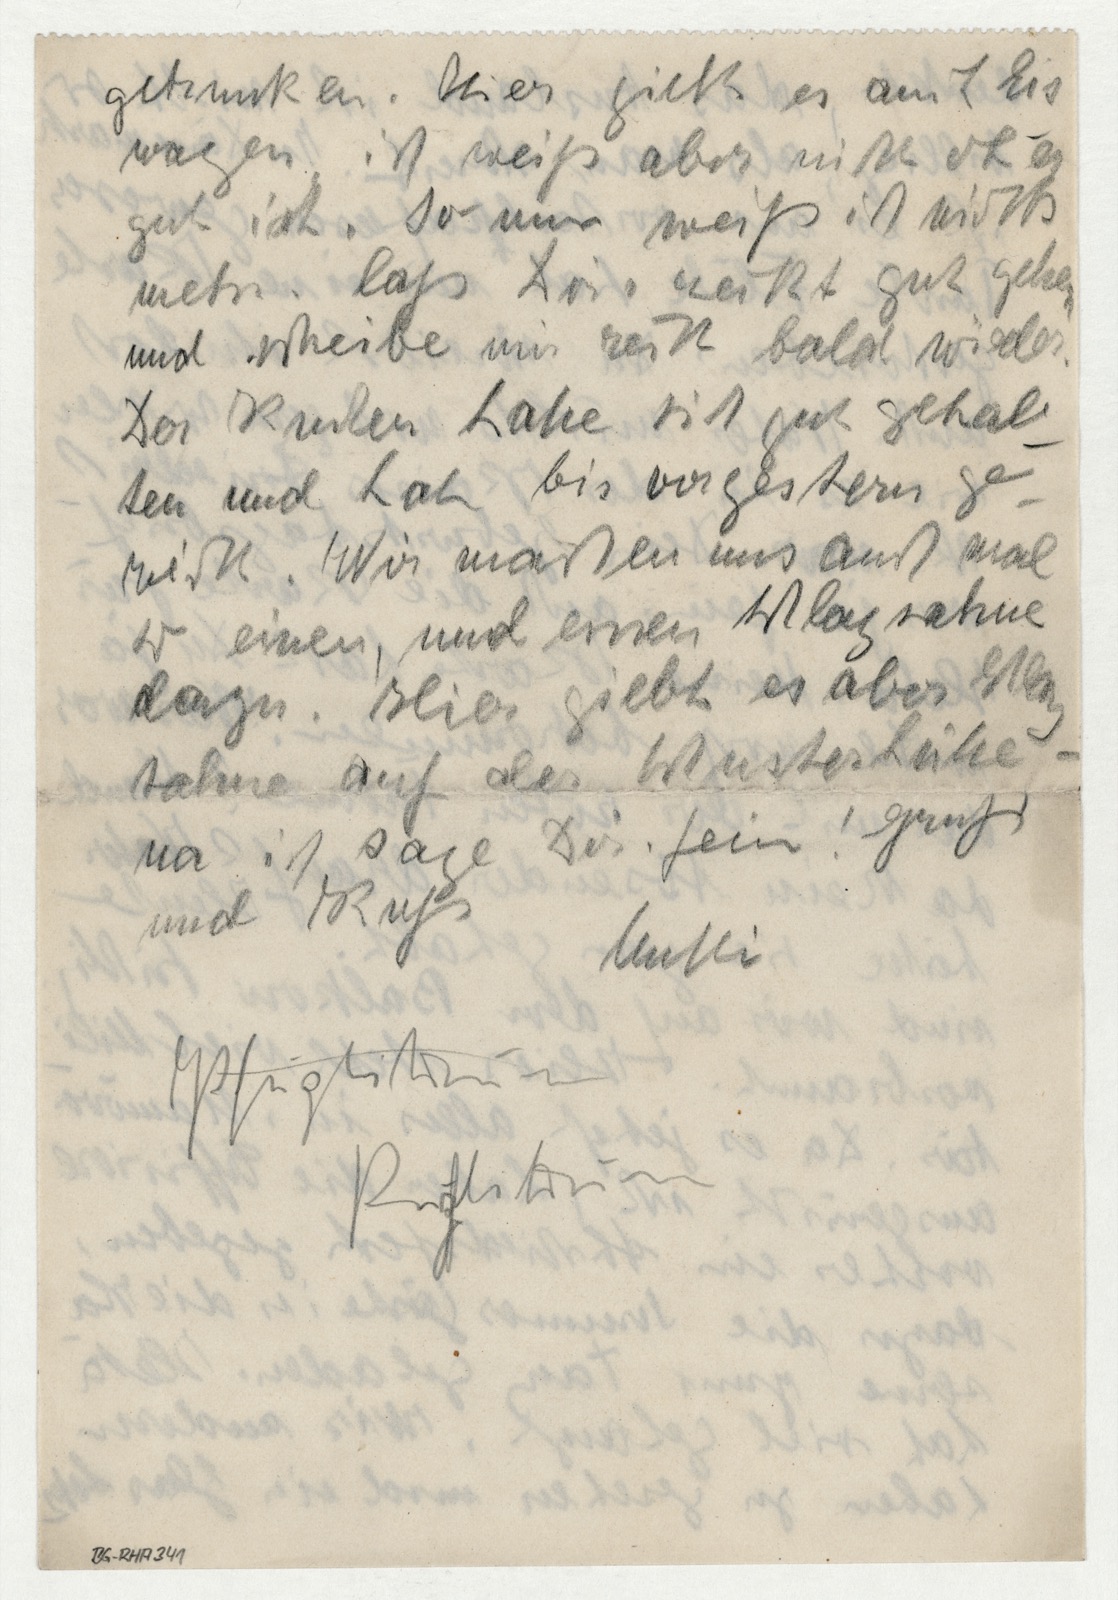 getrunken. Hier gibt es auch Eis
wagen, ich weiß aber nicht ob es
gut ist. So nun weiß ich nichts
mehr. laß Dir recht gut gehen
und schreibe mir recht bald wieder.
Der Kuchen hatte sich gut gehal-
ten und hat bis vorgestern ge-
reicht. Wir machten uns auch mal
so einen, und einen Schlagsahne
dazu. Hier giebt es aber Schlag
sahne auf der
na ich sage Dir. fein! Gruß
und Kuß
Mutti
BG-RHA341